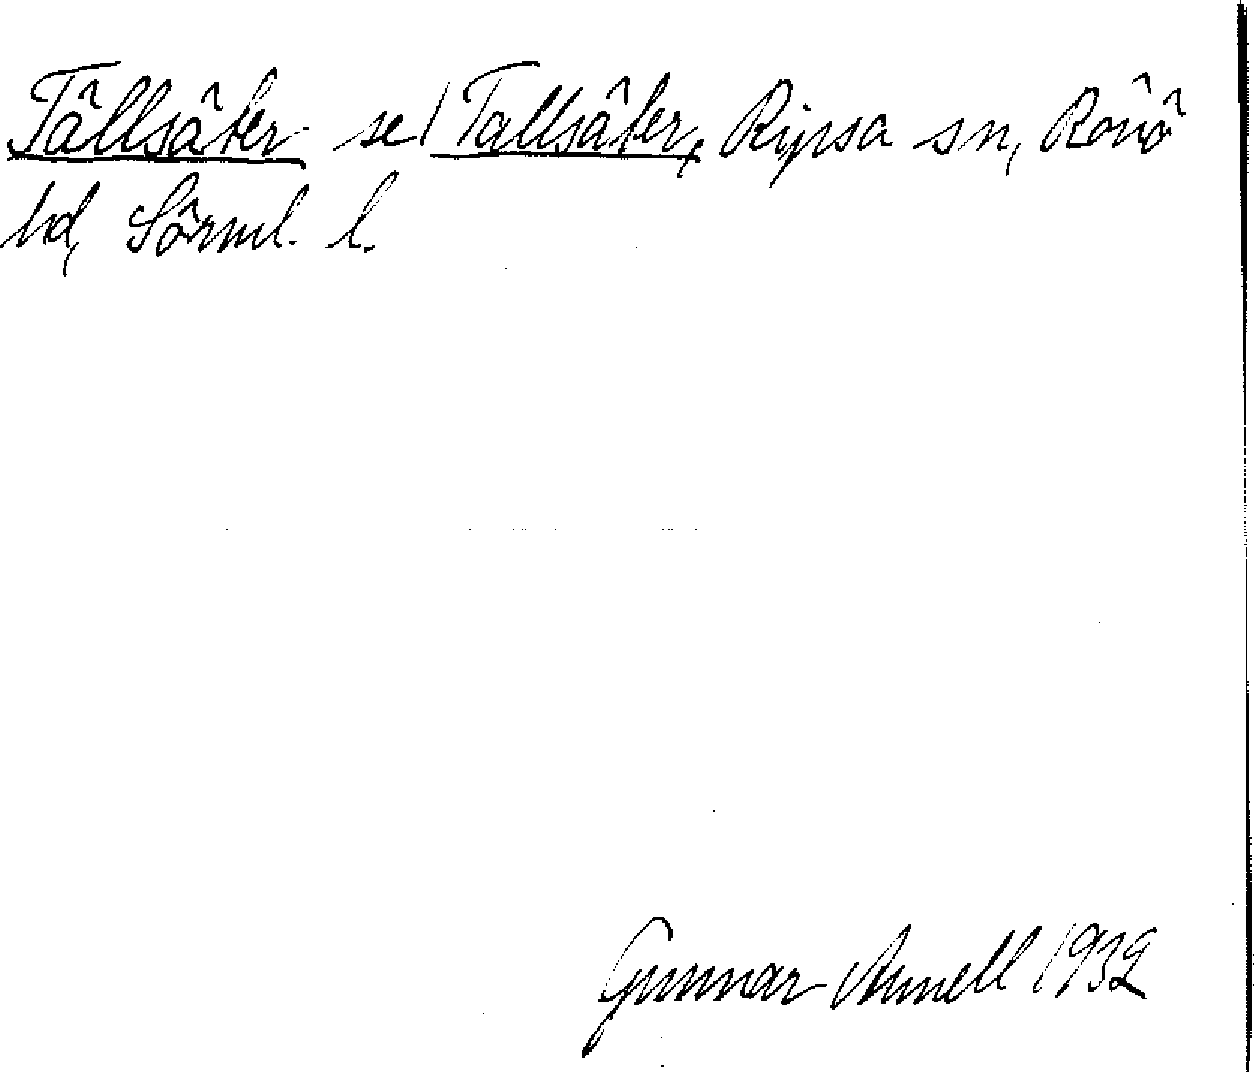 Tällsäter se/ Tallsäter, Ripsa sn, Rönö
hd, Sörml. l.
Gunnar Annell 1932